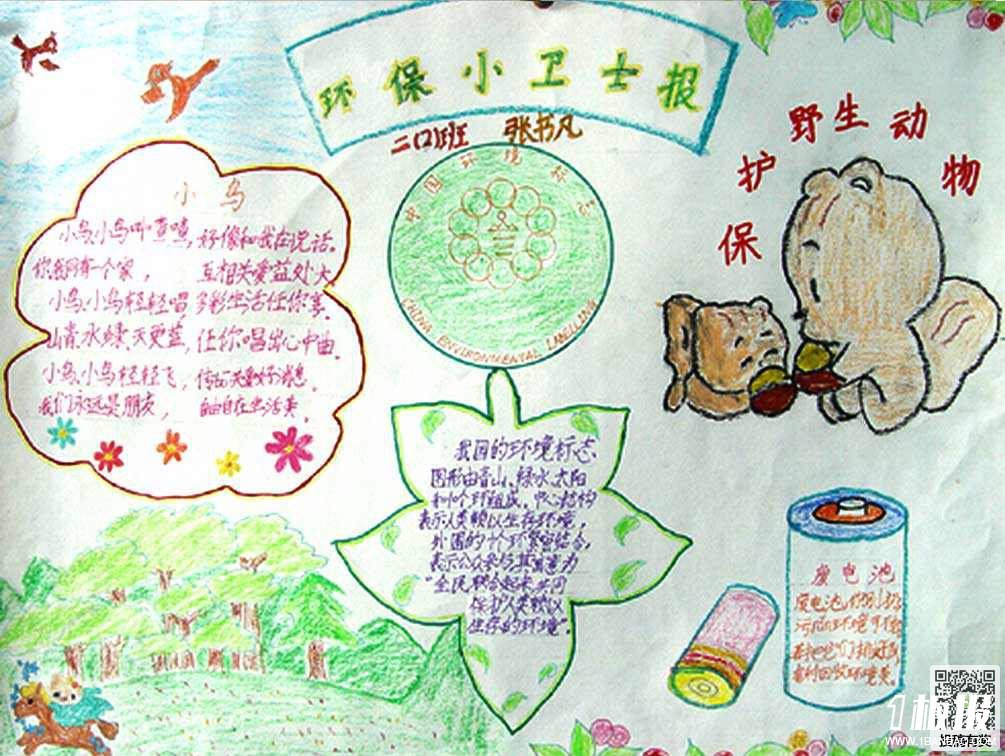 环保小卫士报
二(2)班 张书凡
保护野生动物
小鸟
小鸟、小鸟叫喳喳,好像和我在说话。
你我同有一个家, 互相关爱益处大
小鸟、小鸟轻轻唱,多彩生活任你享。
山青、水绿、天更蓝,任你唱出心中曲。
小鸟、小鸟轻轻飞,传好消息。
我们永远是朋友, 自由自在生活美。
中国环境标志
CHINA ENVIRONMENTAL LABELLING
我国的环境标志
图形由青山、绿水、太阳
和十个环组成。中心结构
表示人类赖以生存环境,
外围的十个环紧密结合,
表示公众参与,其寓意为
“全民联合起来,共同
保护人类赖以
生存的环境”。
废电池
废电池,
污染环境
有利回收环境美。
1板报
WWW.1BANBAO.COM